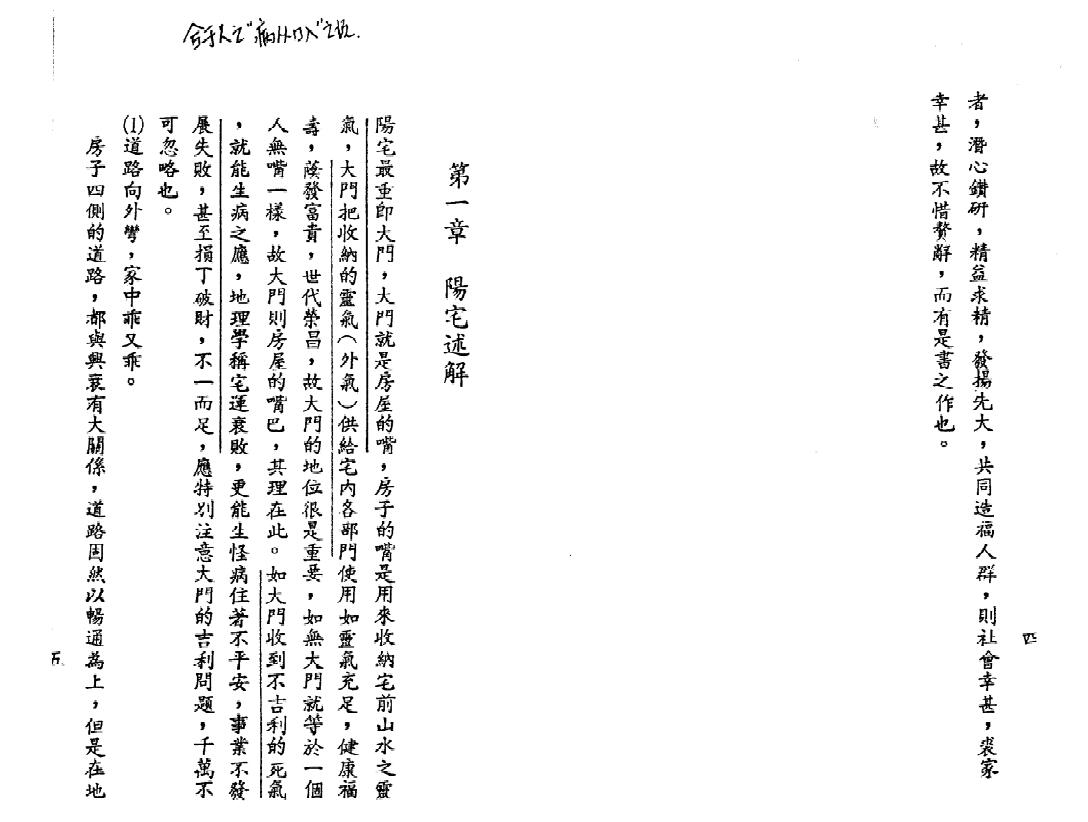 者，潛心鑽研，精益求精，發揚光大，共同造福人群，則社會幸甚，裘家
幸甚，故不惜贅辭，而有是書之作也。
四
病從口入
第一章　陽宅述解
陽宅最重即大門，大門就是房屋的嘴，房子的嘴是用來收納宅前山水之靈
氣，大門把收納的靈氣（外氣）供給宅內各部門使用如靈氣充足，健康福
壽，蔭發富貴，世代榮昌，故大門的地位很是重要，如無大門就等於一個
人無嘴一樣，故大門則房屋的嘴巴，其理在此。如大門收到不吉利的死氣
，就能生病之應，地理學稱宅運衰敗，更能生怪病住著不平安，事業不發
展失敗，甚至損丁破財，不一而足，應特別注意大門的吉利問題，千萬不
可忽略也。
(1)道路向外彎，家中乖又乖。
房子四側的道路，都與興衰有大關係，道路固然以暢通為上，但是在地
五